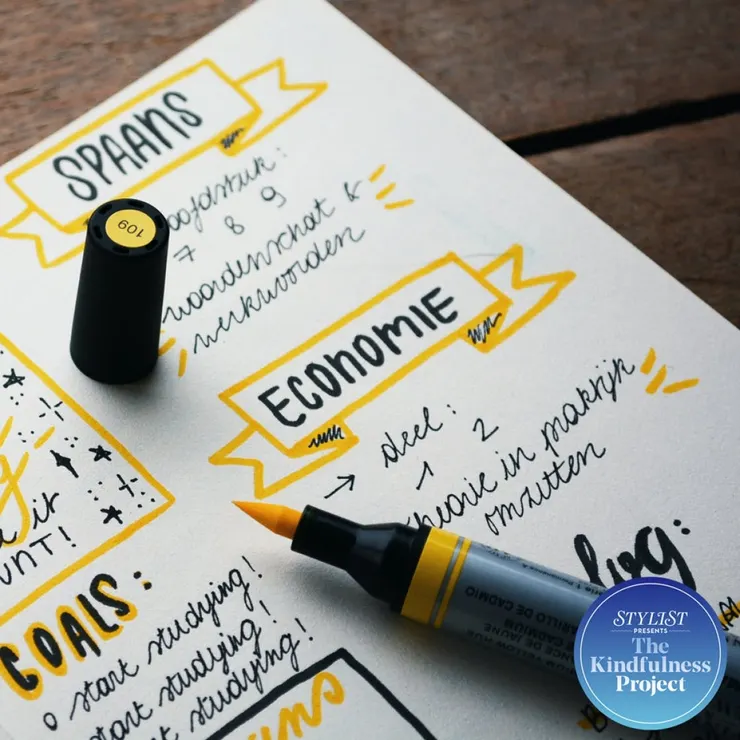 SPAANS
7 8 9
woordenschat &
werkwoorden
109
ECONOMIE
→ deel:
1 2
theorie in praktijk
omzetten
it
UNT!
GOALS:
o start studying!
start studying!
start studying!
AMARILLO DE CADMIO
STYLIST
PRESENTS
The
Kindfulness
Project